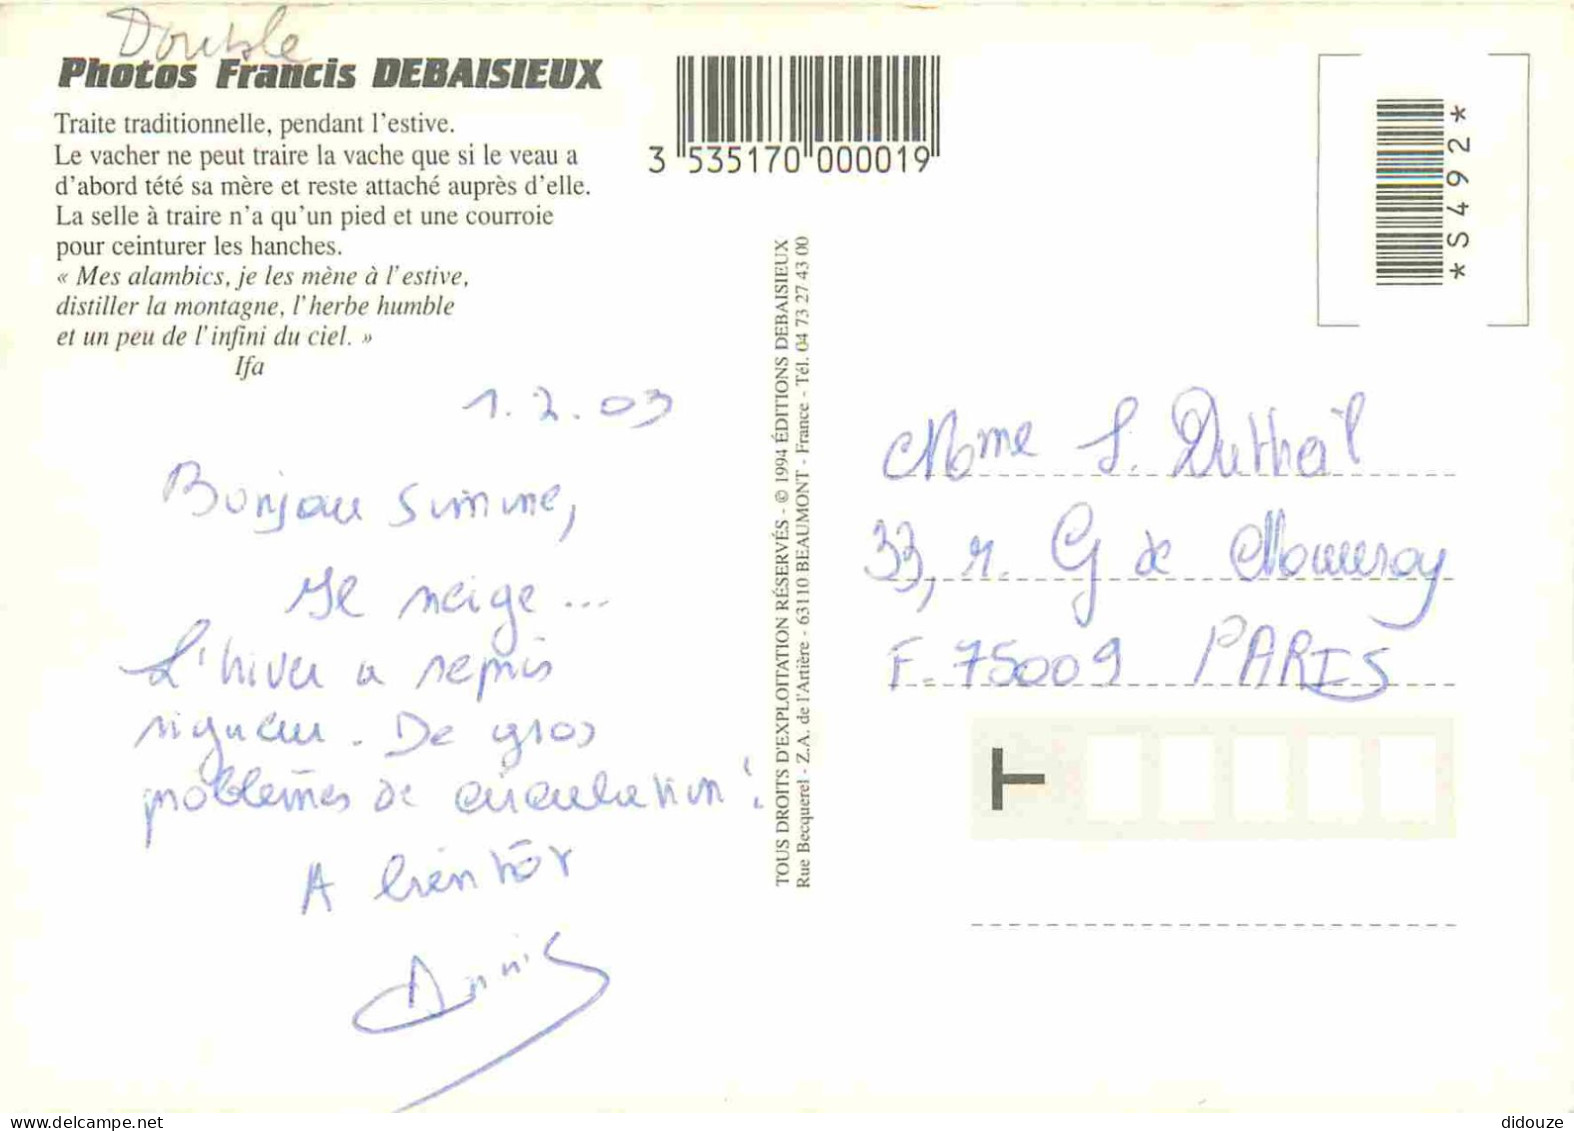 Double
Photos Francis DEBAISIEUX
Traite traditionnelle, pendant l'estive.
Le vacher ne peut traire la vache que si le veau a
d'abord tété sa mère et reste attaché auprès d'elle.
La selle à traire n'a qu'un pied et une courroie
pour ceinturer les hanches.
« Mes alambics, je les mène à l'estive,
distiller la montagne, l'herbe humble
et un peu de l'infini du ciel. »
Ifa
1.2.03
Bonjour Simone,
Il neige...
L'hiver a repris
rigueur. De gros
problèmes de circulation !
A bientôt
Annie
3 535170 000019
TOUS DROITS D'EXPLOITATION RÉSERVÉS - © 1994 ÉDITIONS DEBAISIEUX
Rue Becquerel - Z.A. de l'Artière - 63110 BEAUMONT - France - Tél. 04 73 27 43 00
*S492*
Mme S. Dutheil
33, r. G de
F. 75009 PARIS
T
delcampe.net
didouze